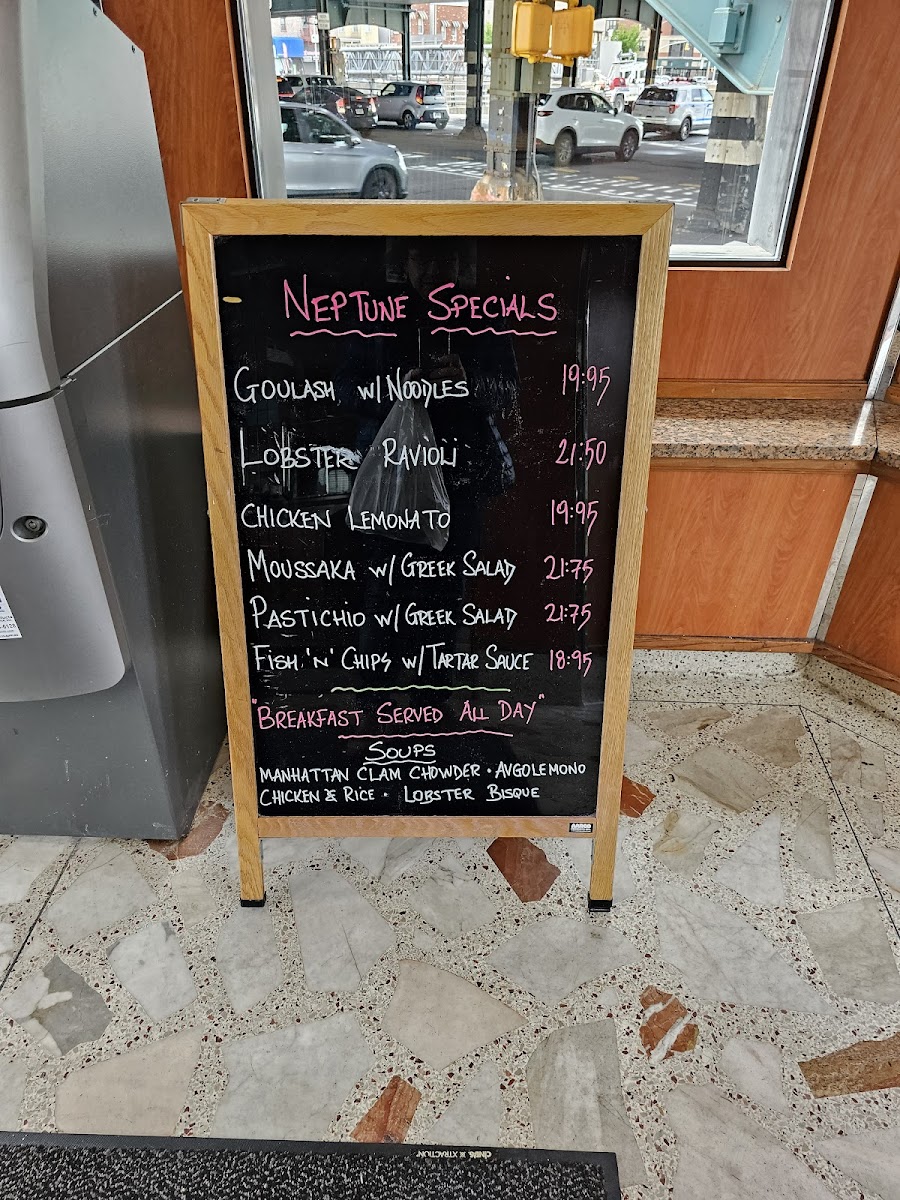 NEPTUNE SPECIALS
GOULASH W/ NOODLES 19:95
LOBSTER RAVIOLI 21:50
CHICKEN LEMONATO 19:95
MOUSSAKA W/ GREEK SALAD 21:75
PASTICHIO W/ GREEK SALAD 21:75
FISH 'N' CHIPS W/ TARTAR SAUCE 18:95
"BREAKFAST SERVED ALL DAY"
SOUPS
MANHATTAN CLAM CHOWDER · AVGOLEMONO
CHICKEN & RICE · LOBSTER BISQUE
XTRACTION